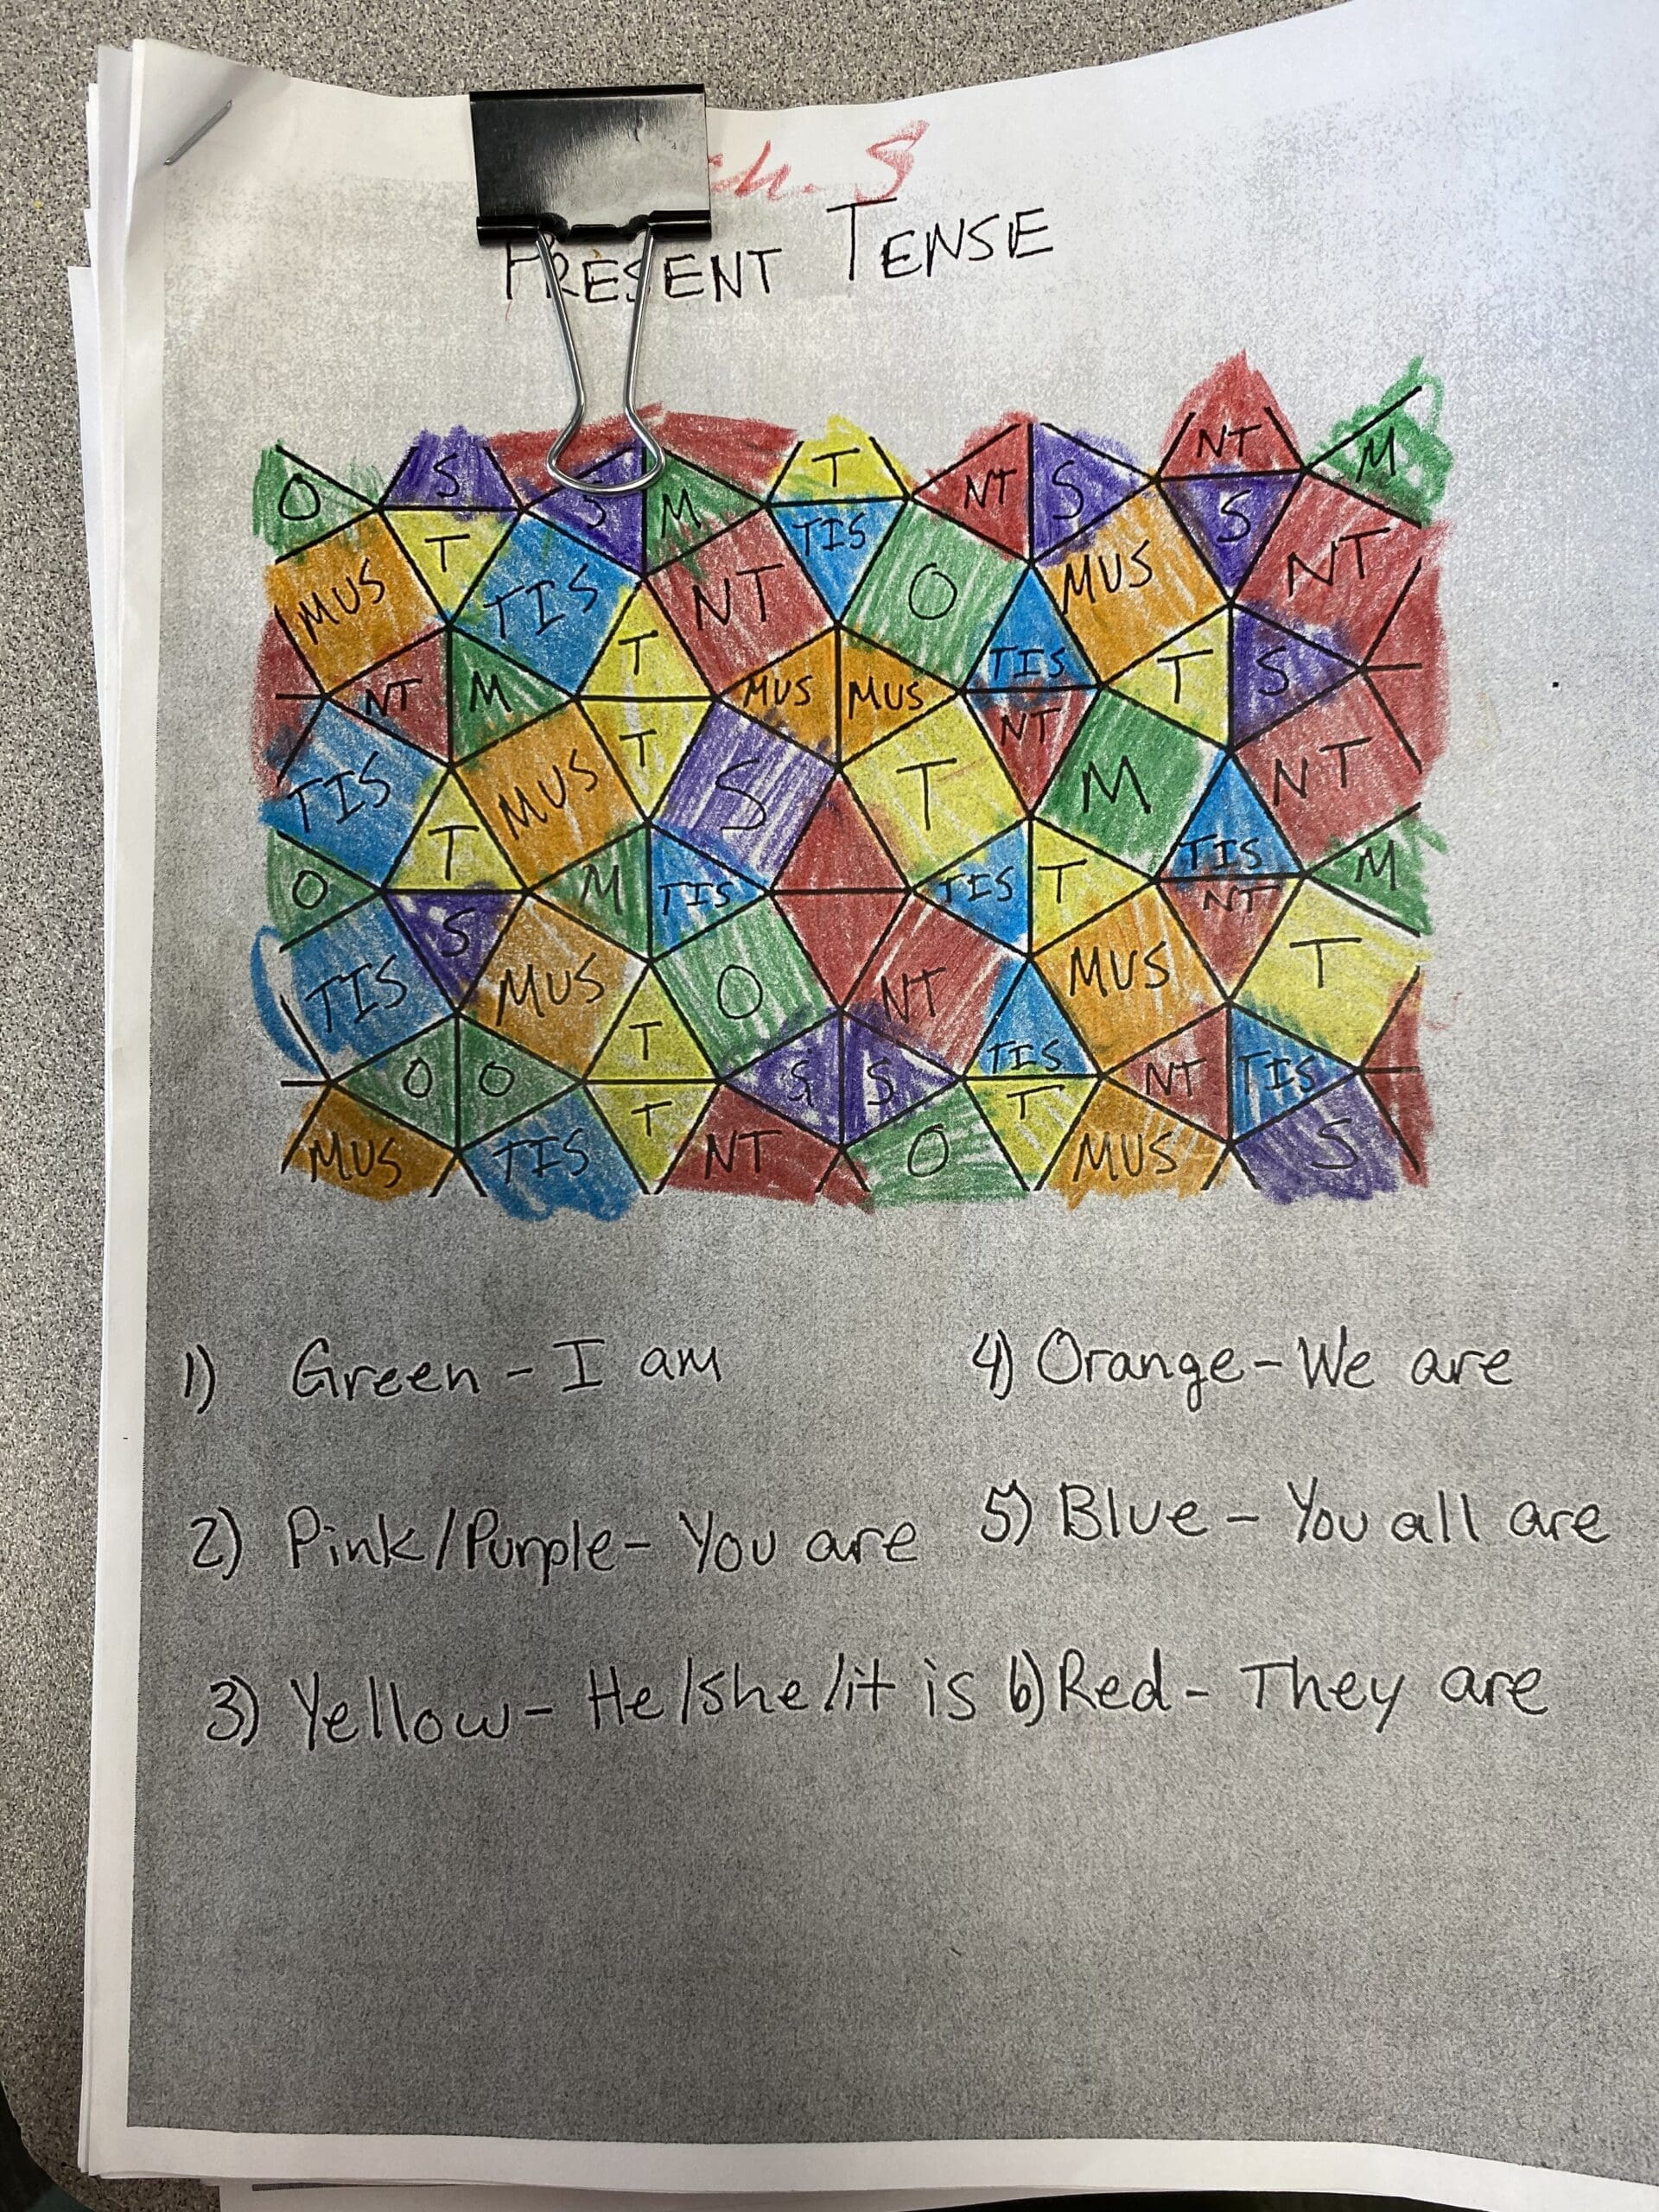 S
PRESENT TENSE
O S S M T NT S NT M
T TIS S
MUS TIS NT O MUS NT
T TIS T S
NT M MUS MUS NT
TIS MUS T S T M NT
T TIS
O M TIS TIS T NT M
S
TIS MUS O NT MUS T
T TIS
O O S S NT TIS
T T
MUS TIS NT O MUS S
1) Green - I am
4) Orange - We are
2) Pink/Purple - You are
5) Blue - You all are
3) Yellow - He/she/it is
6) Red - They are